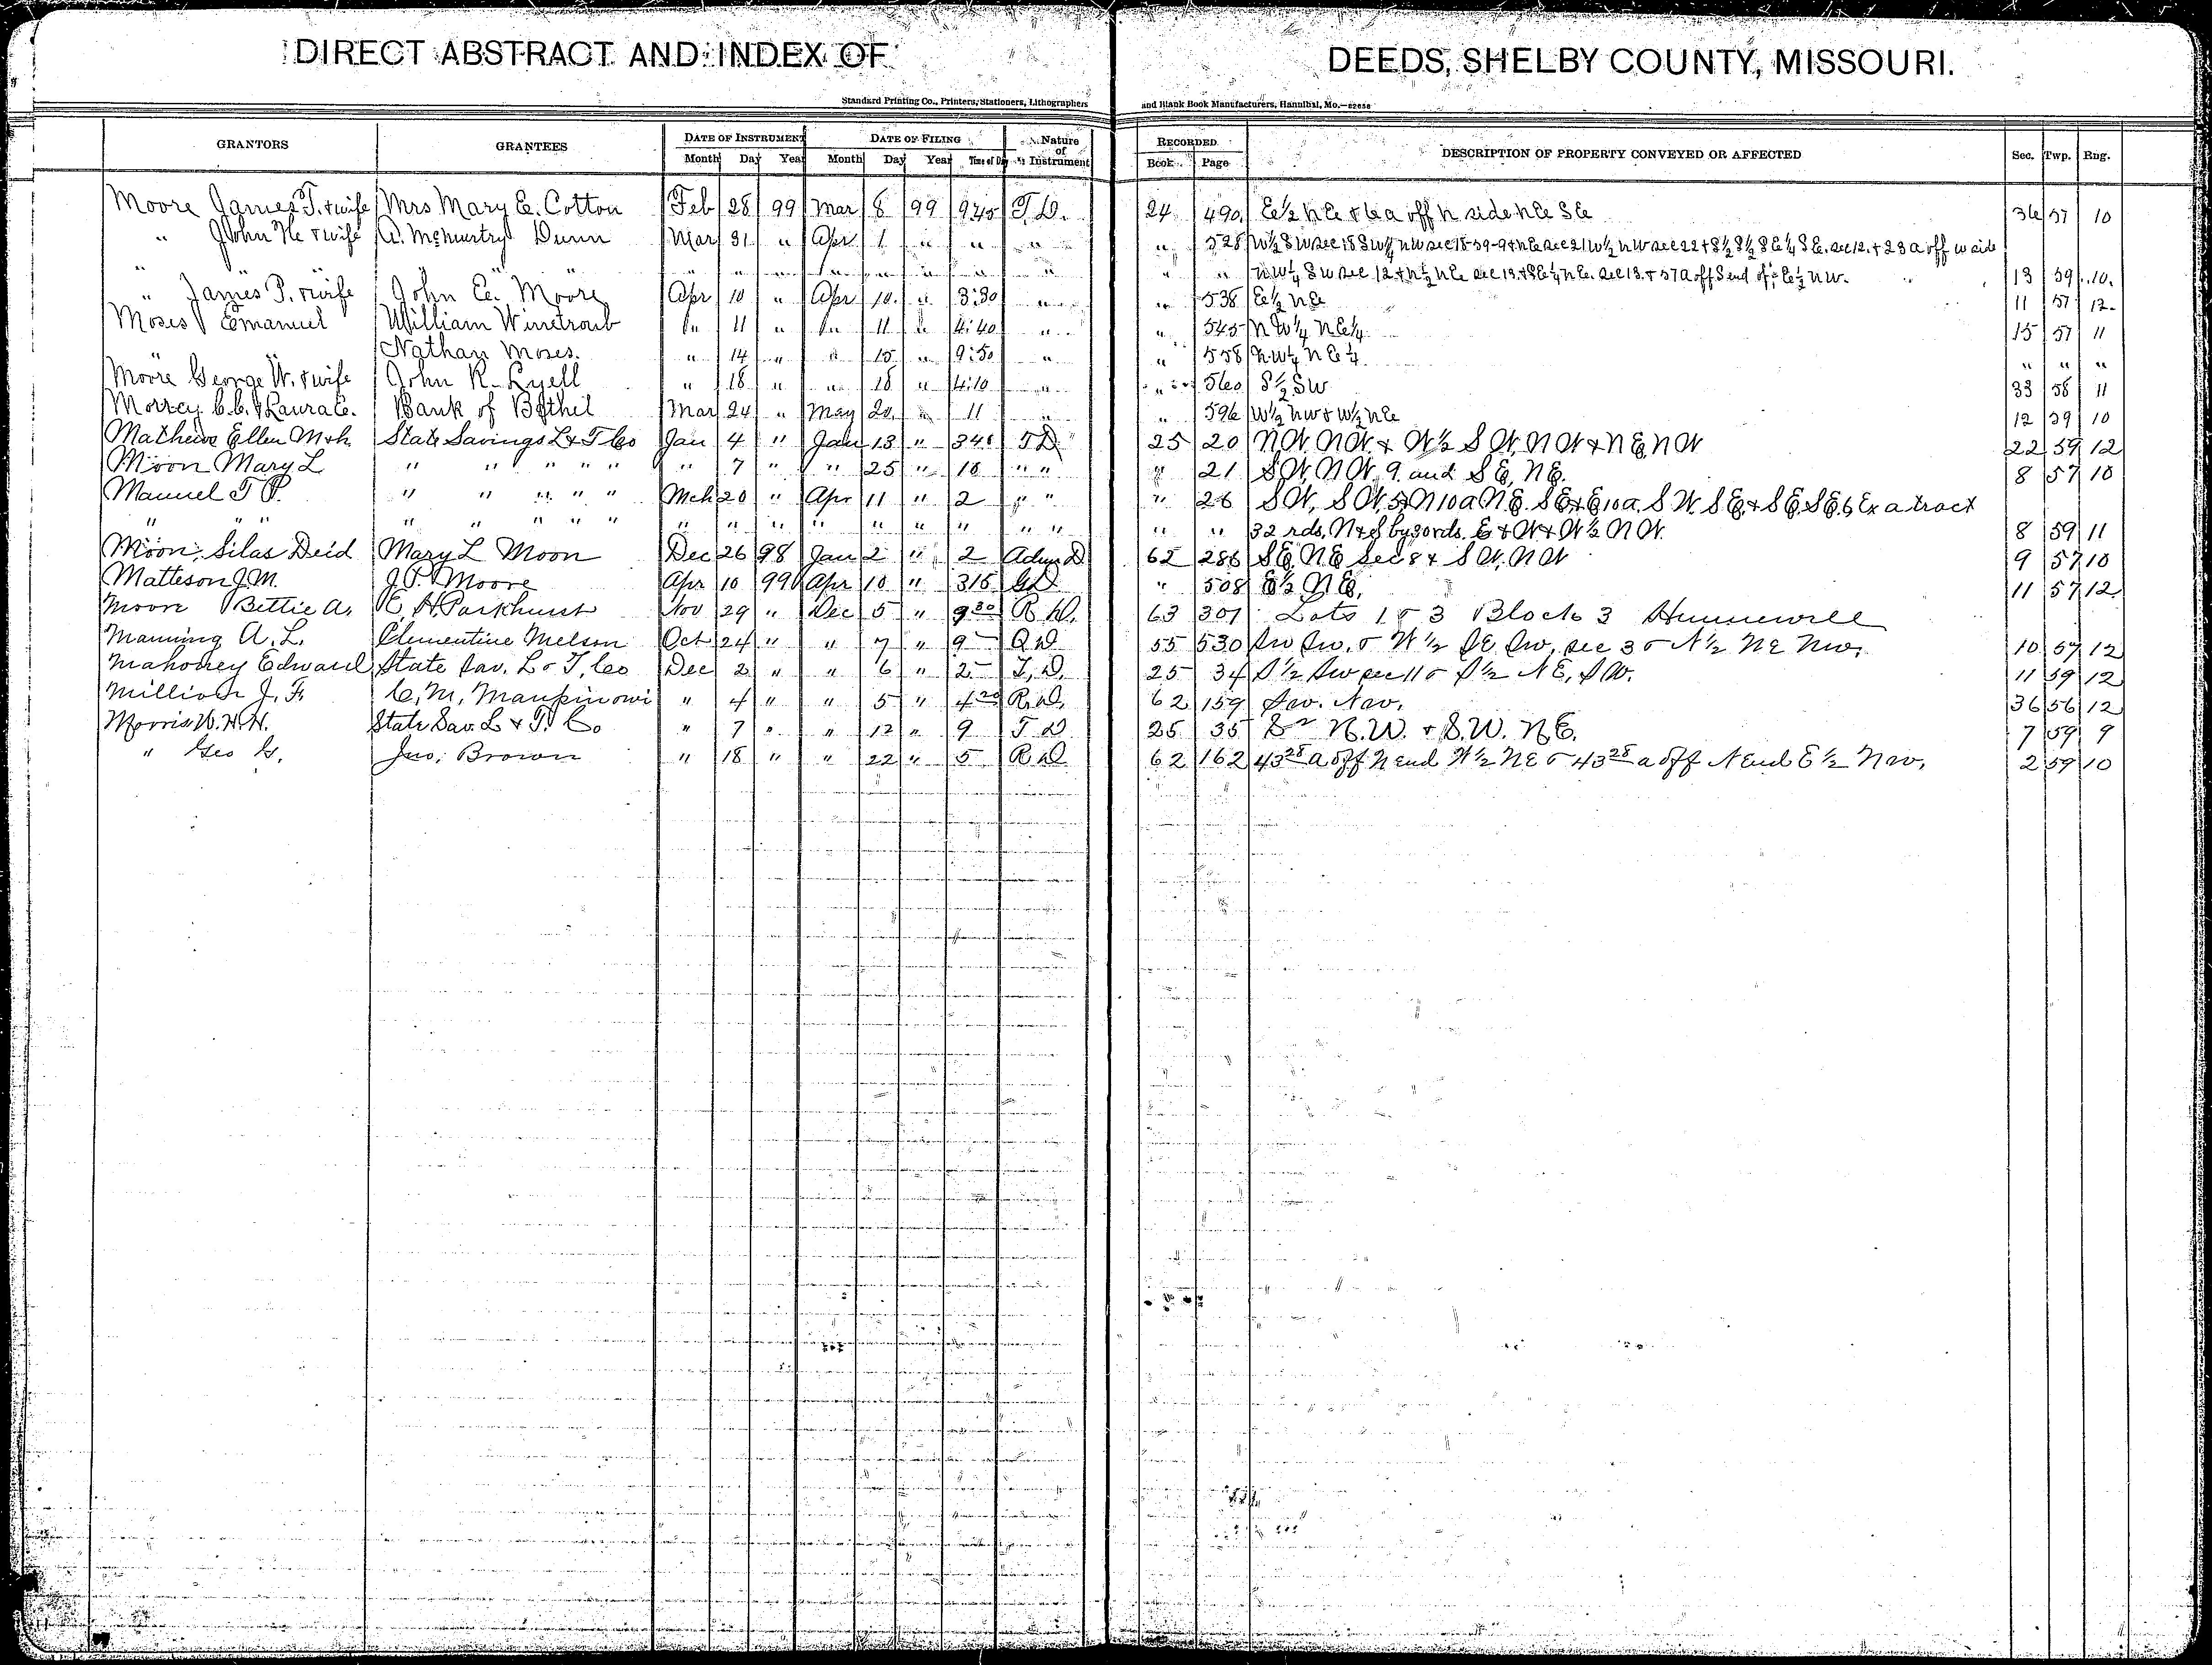 DIRECT ABSTRACT AND INDEX OF DEEDS, SHELBY COUNTY, MISSOURI.
Standard Printing Co., Printers, Stationers, Lithographers and Blank Book Manufacturers, Hannibal, Mo.
GRANTORS GRANTEES DATE OF INSTRUMENT DATE OF FILING Nature of Instrument RECORDED DESCRIPTION OF PROPERTY CONVEYED OR AFFECTED Sec. Twp. Rng.
Month Day Year Month Day Year Time of Day Book Page
Moore James T. & wife Mrs Mary E. Cotton Feb 28 99 Mar 8 99 9 45 T.D. 24 490 E½ NE & 6 a off N side NE SE 36 57 10
" John H. & wife McMurtry Dunn Mar 31 " Apr 1 " " " " 528 W½ SW sec 18 SW¼ NW sec 18-59-9 & NE sec 21 W½ NW sec 22 & S½ S½ SE¼ SE. sec 12. & 23 a off W side
" " " " " " " " " " " " NW¼ SW sec 12 & N½ NE sec 13. & SE¼ NE. sec 13. & 57 a off S end of E½ NW. 13 59 10.
" James P. & wife John E. Moore Apr 10 " Apr 10 " 3:30 " " 538 E½ NE 11 57 12
Moses Emanuel William Winetroub " 11 " " 11 " 4:40 " " 545 NW¼ NE¼ 15 57 11
Nathan Moses. " 14 " " 15 " 9:50 " " 558 NW¼ NE¼ " " "
Moore George W. & wife John R. Lyell " 18 " " 18 " 4:10 " " 560 S½ SW 33 58 11
C.C. & Laura E. Bank of Bethel Mar 24 " May 20 " 11 " " 596 W½ NW & W½ NE 12 59 10
Mathews Ellen M & h. State Savings L & T Co Jan 4 " Jan 13 " 3 4 TD 25 20 NW, NW, & W½ SW, NW & NE, NW 22 59 12
Moon Mary L " " " " " " 7 " " 25 " 10 " " " 21 SW, NW, 9 and SE, NE. 8 57 10
Manuel T P. " " " " " Mch 20 " Apr 11 " 2 " " " 26 SW, SW, 5 & N 10 a NE. SE & E 10 a. SW. SE & SE. SE. 6 Ex a tract
" " " " " " " " " " " " " " " " " " " 32 rds, N & S by 30 rds. E & W & W½ NW. 8 59 11
Moon, Silas Decd Mary L Moon Dec 26 98 Jan 2 " 2 Adm D 62 286 SE, NE sec 8 & SW, NW 9 57 10
Matteson J.M. J.P. Moore Apr 10 99 Apr 10 " 3 15 " 508 E½ NE, 11 57 12
Moore Bettie A. E. H. Parkhurst Nov 29 " Dec 5 " 9 20 63 301 Lots 1 & 3 Block 3 Hunnewell
Manning A. L. Clementine Melson Oct 24 " " 7 " 9 55 530 SW SW, & W½ SE SW, sec 3 & N½ NE NW, 10 57 12
Mahoney Edward State Sav. L & T. Co Dec 2 " " 6 " 2 T.D. 25 34 S½ SW sec 11 & S½ NE, SW. 11 59 12
Million J. F. C. M. Maupin " 4 " " 5 " 4 20 62 159 SW. NW. 36 56 12
Morris W. H. H. State Sav. L & T. Co " 7 " " 12 " 9 T D 25 35 N.W. & S.W. N.E. 7 59 9
" Geo G. Jno. Brown " 18 " " 22 " 5 62 162 43 28 a off N end W½ NE & 43 28 a off N end E½ NW, 2 59 10